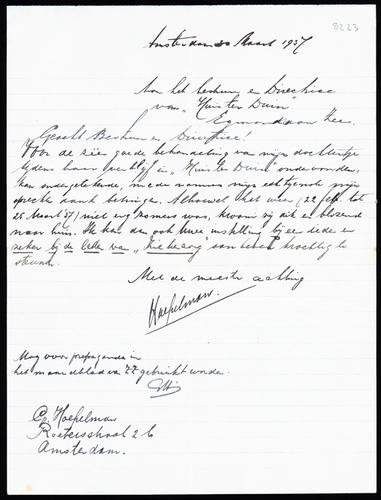 8223
Amsterdam 30 Maart 1937
Aan het bestuur en Directrice
van "Huis ter Duin"
Egmond aan Zee.
Geacht Bestuur en Directrice!
Voor de zeer goede behandeling van mijn dochtertje
tijdens haar verblijf in "Huis ter Duin" ondervonden,
kan ondergeteekende, mede namens mijn echtgenote mijn
oprechte dank betuigen. Alhoewel het weer (22 Febr. tot
26 Maart 37) niet erg zomers was, kwam zij dik en blozend
naar huis. Ik kan dan ook Uwe instelling bij een ieder en
zeker bij de leden van "Ziekezorg" aanbevelen krachtig te
steunen.
Met de meeste achting
Hoepelman.
Mag voor propaganda in
het maandblad v. Z.Z. gebruikt worden.
C. Hoepelman
Roetersstraat 2 b
Amsterdam.